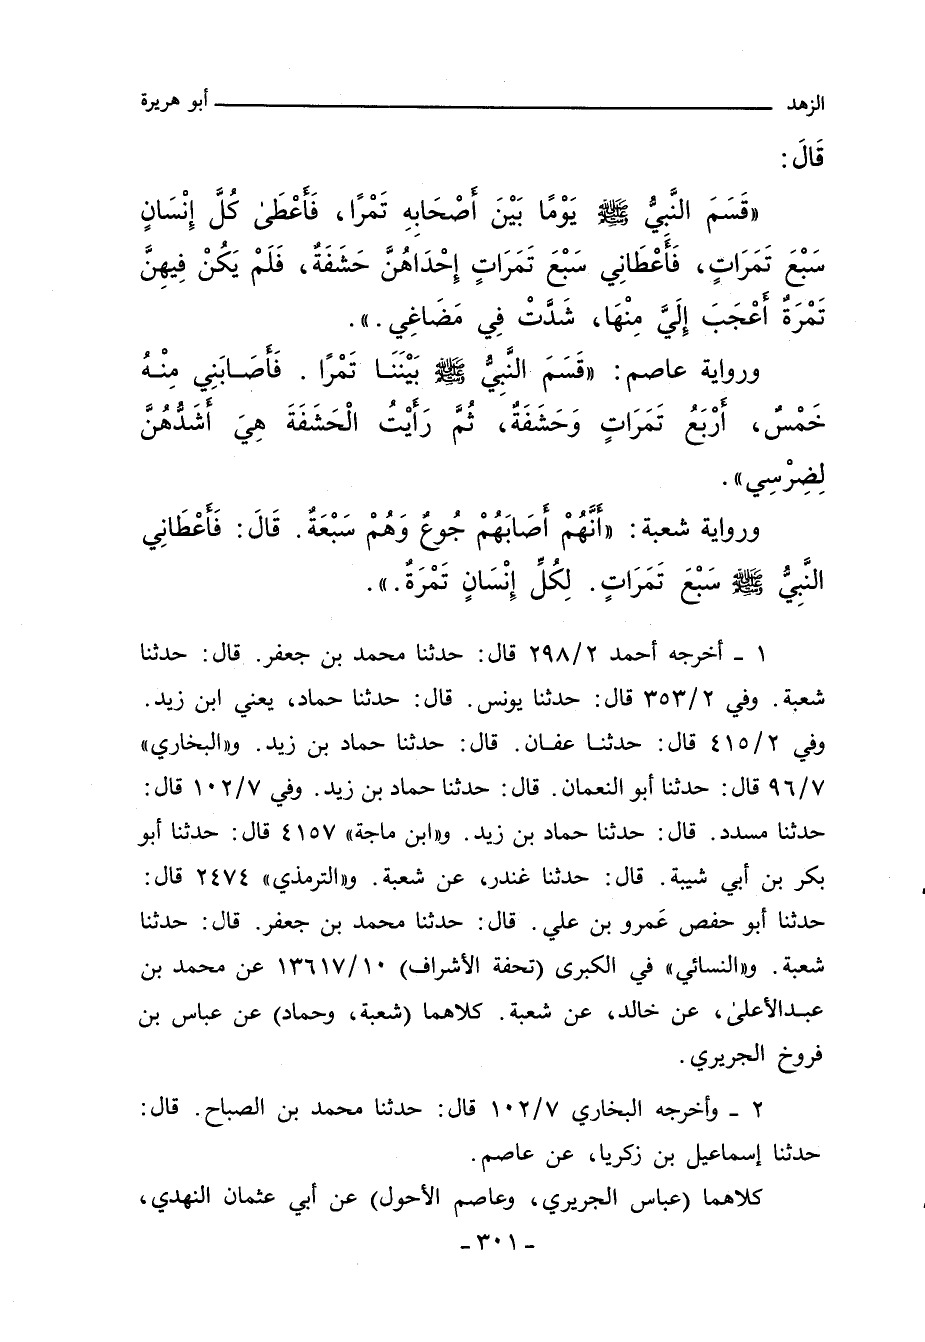 الزهد ــــــــــ أبو هريرة
قَالَ :
«قَسَمَ النَّبِيُّ ﷺ يَوْمًا بَيْنَ أَصْحَابِهِ تَمْرًا، فَأَعْطَىٰ كُلَّ إِنْسَانٍ
سَبْعَ تَمَرَاتٍ، فَأَعْطَانِي سَبْعَ تَمَرَاتٍ إِحْدَاهُنَّ حَشَفَةٌ، فَلَمْ يَكُنْ فِيهِنَّ
تَمْرَةٌ أَعْجَبَ إِلَيَّ مِنْهَا، شَدَّتْ فِي مَضَاغِي .» .
ورواية عاصم : «قَسَمَ النَّبِيُّ ﷺ بَيْنَنَا تَمْرًا . فَأَصَابَنِي مِنْهُ
خَمْسٌ، أَرْبَعُ تَمَرَاتٍ وَحَشَفَةٌ، ثُمَّ رَأَيْتُ الْحَشَفَةَ هِيَ أَشَدُّهُنَّ
لِضِرْسِي» .
ورواية شعبة : «أَنَّهُمْ أَصَابَهُمْ جُوعٌ وَهُمْ سَبْعَةٌ . قَالَ : فَأَعْطَانِي
النَّبِيُّ ﷺ سَبْعَ تَمَرَاتٍ . لِكُلِّ إِنْسَانٍ تَمْرَةٌ .» .
١ ـ أخرجه أحمد ٢٩٨/٢ قال : حدثنا محمد بن جعفر. قال : حدثنا
شعبة . وفي ٣٥٣/٢ قال : حدثنا يونس . قال : حدثنا حماد، يعني ابن زيد .
وفي ٤١٥/٢ قال : حدثنا عفان . قال : حدثنا حماد بن زيد . و«البخاري»
٩٦/٧ قال : حدثنا أبو النعمان . قال : حدثنا حماد بن زيد . وفي ١٠٢/٧ قال :
حدثنا مسدد . قال : حدثنا حماد بن زيد . و«ابن ماجة» ٤١٥٧ قال : حدثنا أبو
بكر بن أبي شيبة . قال : حدثنا غندر، عن شعبة . و«الترمذي» ٢٤٧٤ قال :
حدثنا أبو حفص عَمرو بن علي . قال : حدثنا محمد بن جعفر. قال : حدثنا
شعبة . و«النسائي» في الكبرى (تحفة الأشراف) ١٣٦١٧/١٠ عن محمد بن
عبدالأعلىٰ، عن خالد، عن شعبة . كلاهما (شعبة، وحماد) عن عباس بن
فروخ الجريري .
٢ ـ وأخرجه البخاري ١٠٢/٧ قال : حدثنا محمد بن الصباح . قال :
حدثنا إسماعيل بن زكريا، عن عاصم .
كلاهما (عباس الجريري، وعاصم الأحول) عن أبي عثمان النهدي،
ـ ٣٠١ ـ